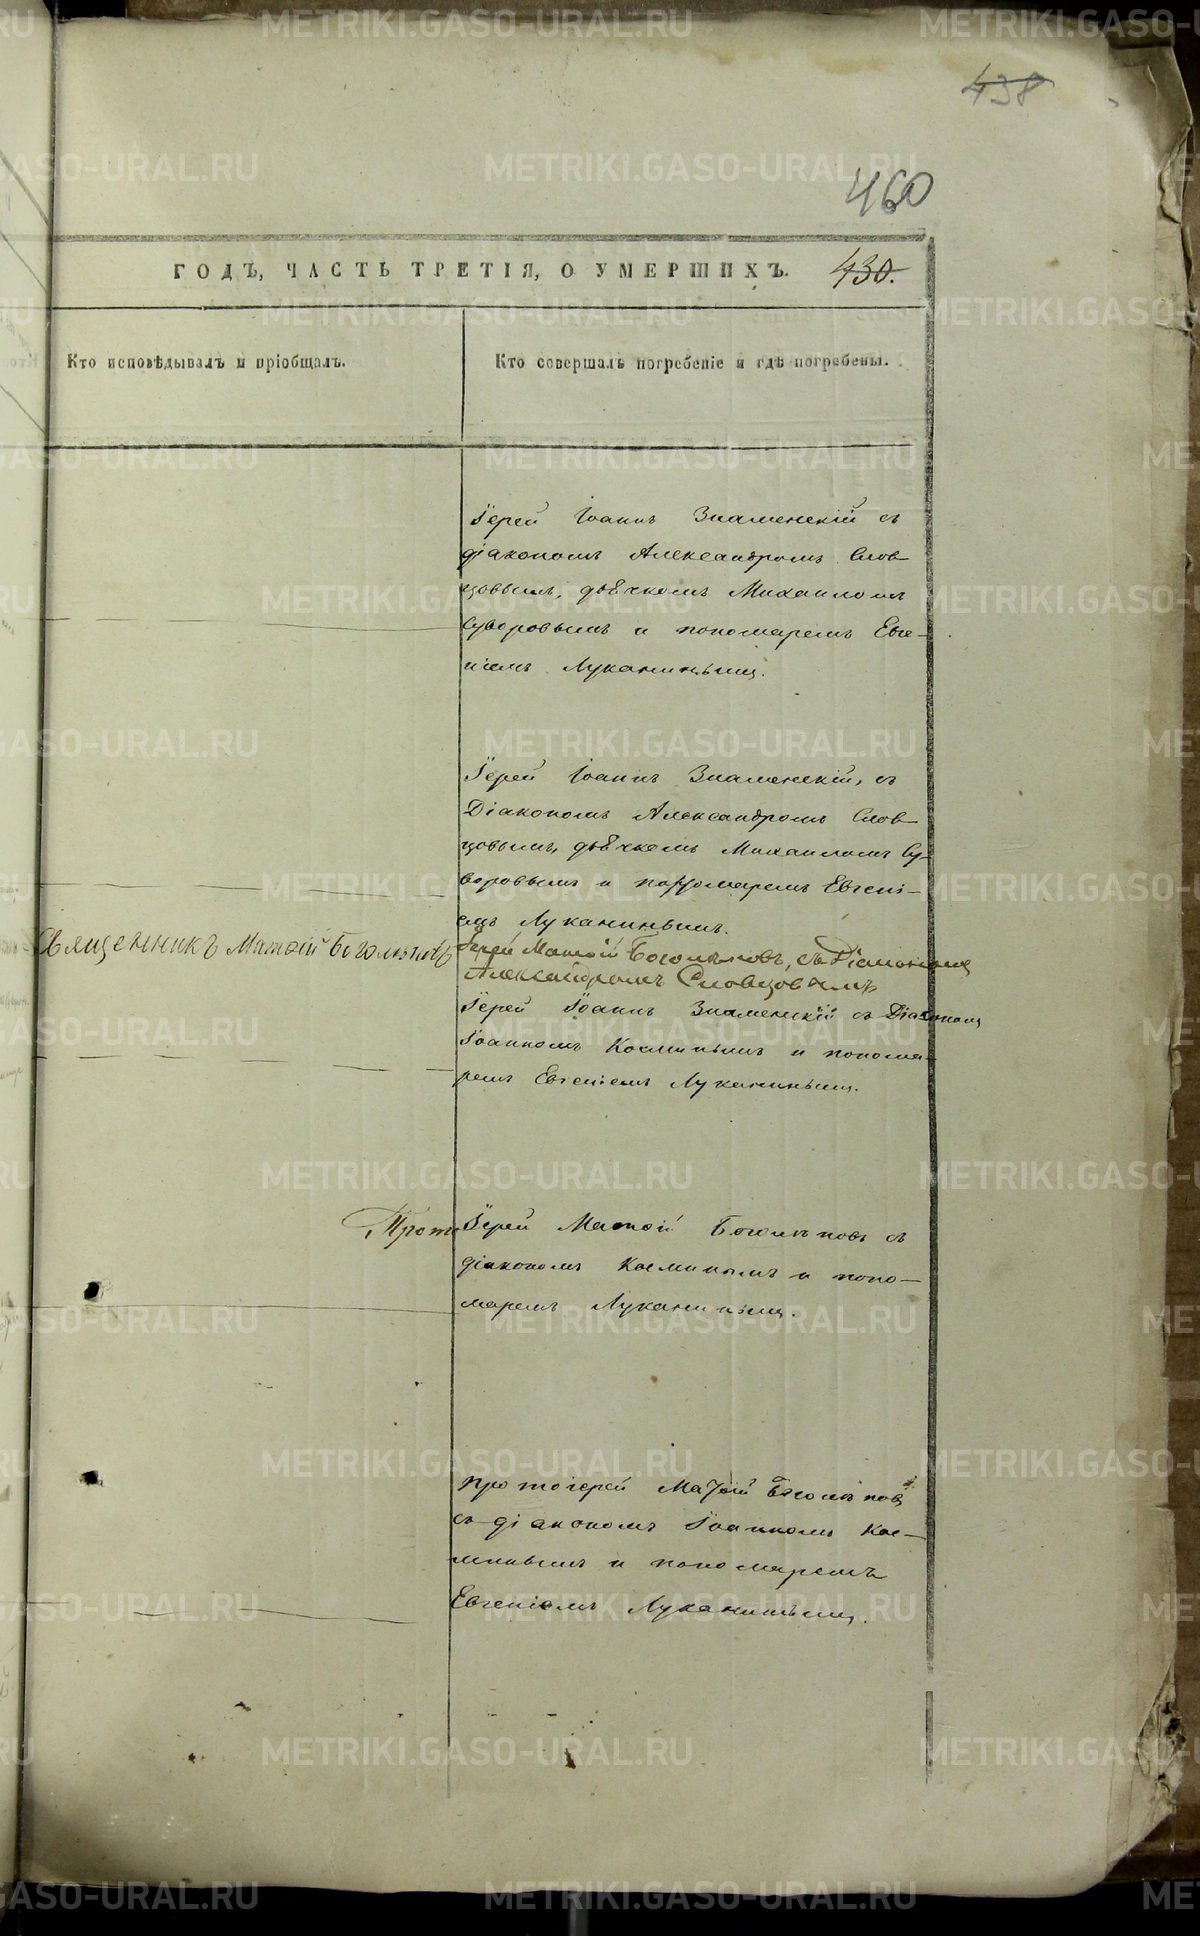 438
460
ГОДЪ, ЧАСТЬ ТРЕТІЯ, О УМЕРШИХЪ. 430.
Кто исповѣдывалъ и пріобщалъ.
Кто совершалъ погребеніе и гдѣ погребены.
Іерей Іоаннъ Знаменскій съ
діакономъ Александромъ Слов-
цовымъ, дьячкомъ Михаиломъ
Суворовымъ и пономаремъ Евге-
ніемъ Луканинымъ.
Іерей Іоаннъ Знаменскій, съ
Діакономъ Александромъ Слов-
цовымъ, дьячкомъ Михаиломъ Су-
воровымъ и пономаремъ Евгені-
емъ Луканинымъ.
Священникъ Матѳій Богомѣловъ
Іерей Матѳій съ Діакономъ
Александромъ Словцовымъ
Іерей Іоаннъ Знаменскій съ Діакономъ
Іоанномъ Косминымъ и понома-
ремъ Евгеніемъ Луканинымъ.
Прото Іерей Матѳій съ
діакономъ Косминымъ и поно-
маремъ Луканинымъ.
протоіерей Маѳѳій
съ діакономъ Іоанномъ Кос-
минымъ и пономаремъ
Евгеніемъ Луканинымъ.
METRIKI.GASO-URAL.RU